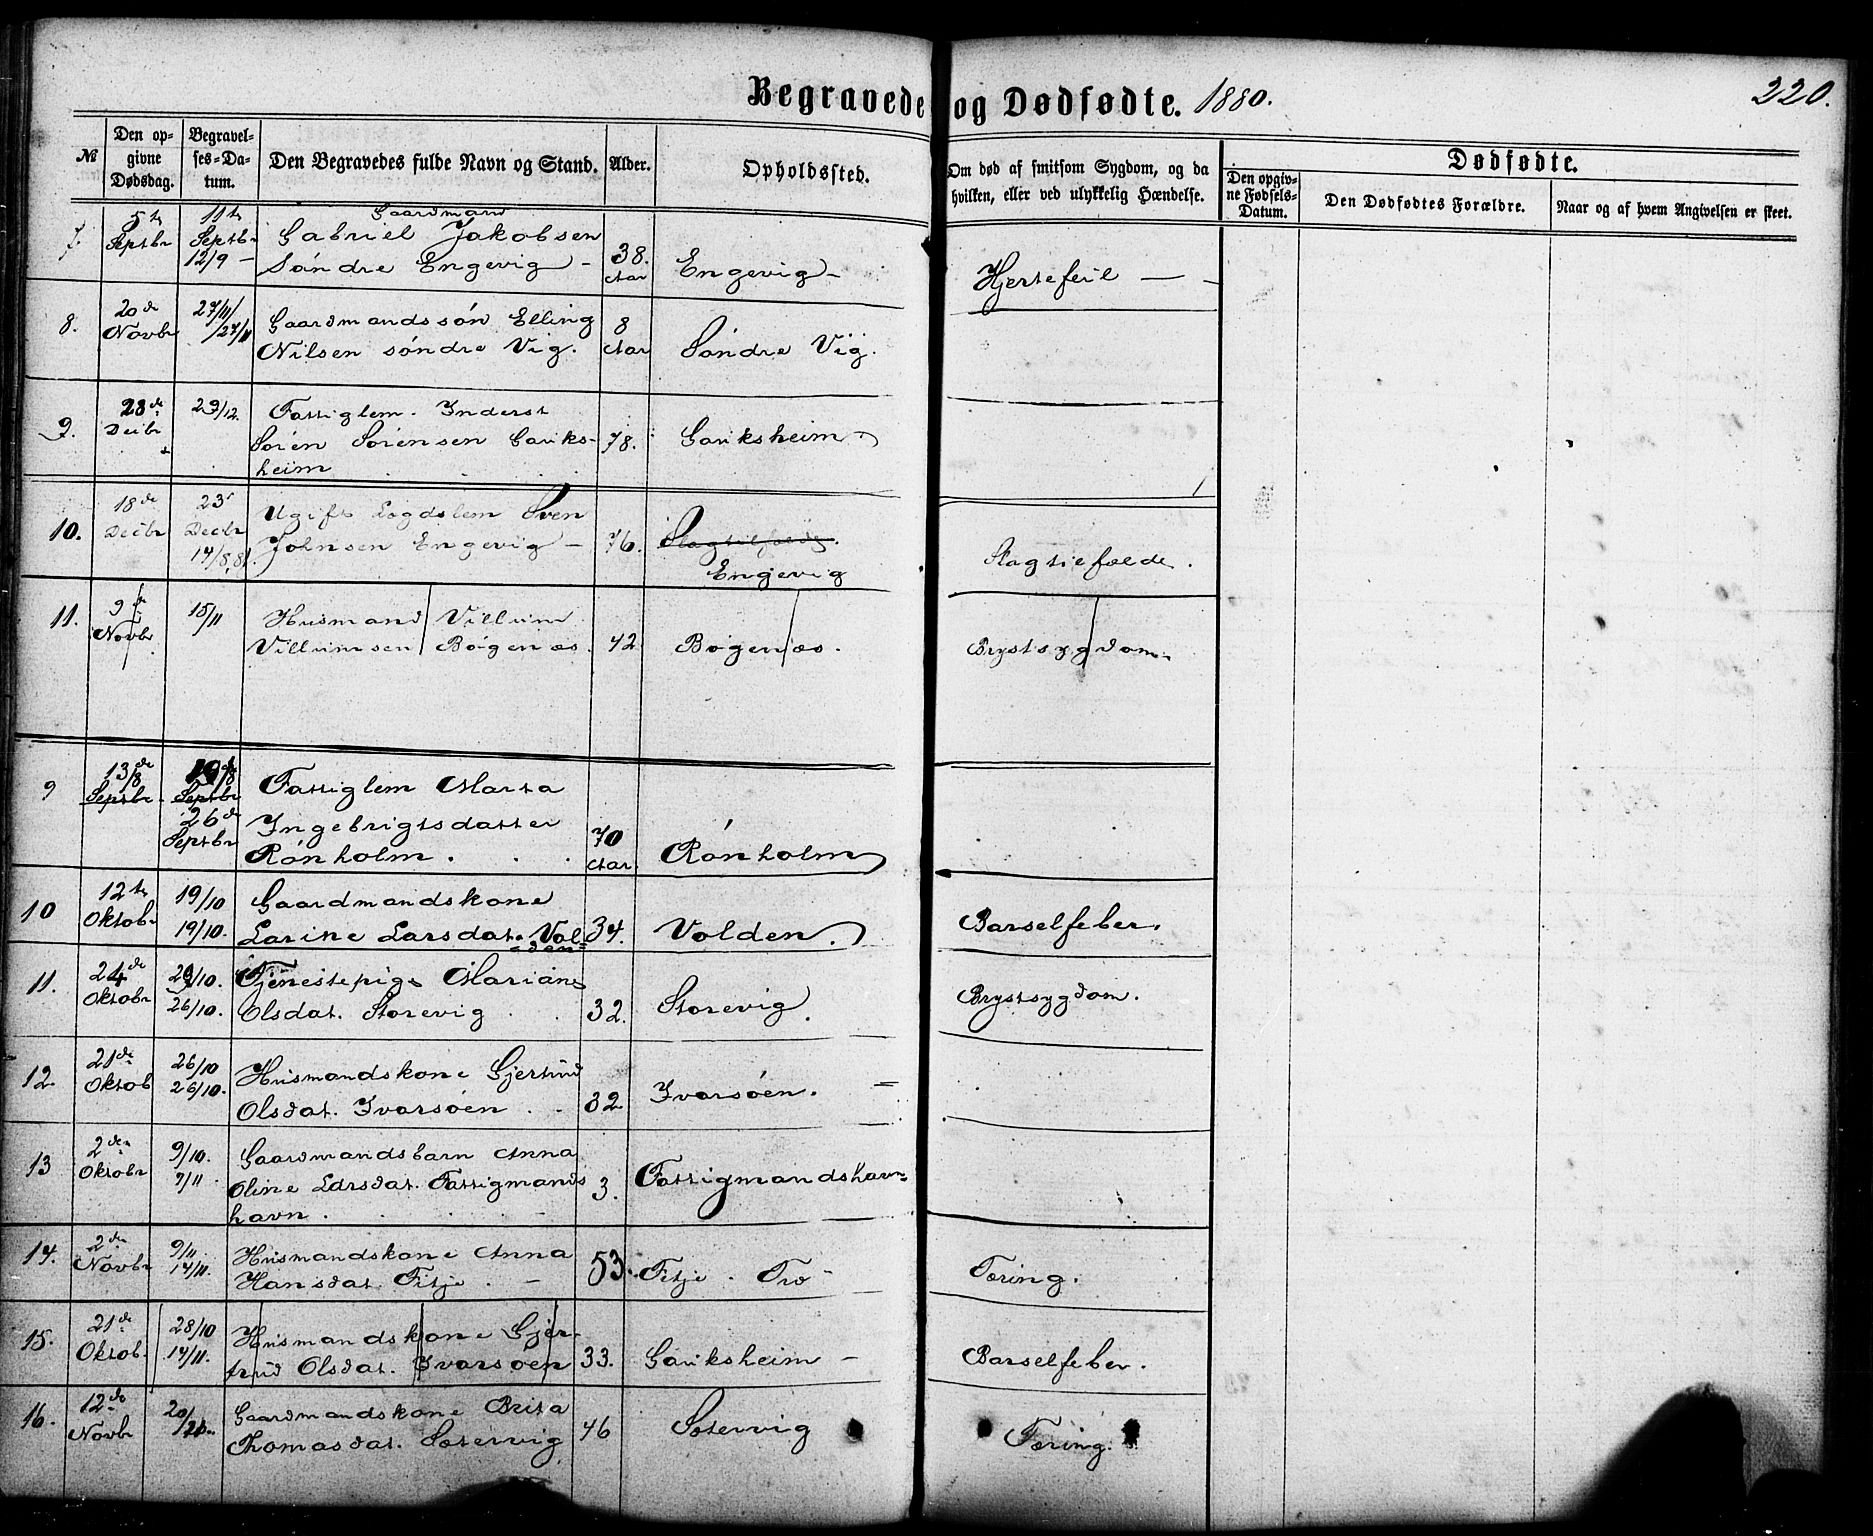 Begravede og Dødfødte. 1880.
220.
№
Den op-
givne
Dødsdag.
Begravel-
ses-Da-
tum.
Den Begravedes fulde Navn og Stand.
Alder.
Opholdssted.
Om død af smitsom Sygdom, og da
hvilken, eller ved ulykkelig Hændelse.
Dødfødte.
Den opgiv-
ne Fødsels-
Datum.
Den Dødfødtes Forældre.
Naar og af hvem Angivelsen er skeet.
7.
5te
Septbr
11te
Septbr
12/9 -
Gaardmand
Gabriel Jakobsen
Søndre Engevig -
38.
Aar
Engevig -
Hjertefeil -
8.
20de
Novbr
27/11
/27/11
Gaardmandssøn Elling
Nilsen søndre Vig.
8
Aar
Søndre Vig.
9.
28de
Decbr
29/12.
Fattiglem. Inderst
Søren Sørensen Gauks-
heim
78.
Gauksheim
10.
18de
Decbr
23
Decbr
14/8.81.
Ugift Lægdslem Sven
Johnsen Engevig -
76.
Slagtilfælde.
Engevig
Slagtilfælde.
11.
9de
Novbr.
15/11
Husmand Villum
Villumsen Bøgenæs.
42
Bøgenæs.
Brystsygdom.
9
13de/8
Septbr
19de/8
Septbr
26de
Septbr
Fattiglem Marta
Ingebrigtsdatter
Rønholm.
70
Aar
Rønholm
10
12te
Oktobr
19/10
19/10.
Gaardmandskone
Larine Larsdat. Vol-
den
34.
Volden.
Barselfeber.
11.
24de
Oktobr
29/10.
26/10.
Tjenestepige Mariane
Olsdat. Storevig
32.
Storevig.
Brystsygdom.
12.
21de
Oktob
26/10
26/10.
Husmandskone Gjertrud
Olsdat. Ivarsøen.
32
Ivarsøen. =
13
2den
Oktobr
9/10.
7/11.
Gaardmandsbarn Anna
Oline Larsdat. Fattigmands
havn.
3.
Fattigmandshavn
14.
2den
Novbr
9/11
14/11.
Husmandskone Anna
Hansdat. Fitje. -
53.
Fitje. Træ -
Tæring.
15.
21de
Oktob.
28/10
14/11.
Husmandskone Gjer-
trud Olsdat. Ivarsøen
33.
Gauksheim -
Barselfeber.
16.
12de
Novbr
20/
/21..
Gaardmandskone Brita
Thomasdat. Sætervig
46
Sætervig
Tæring.